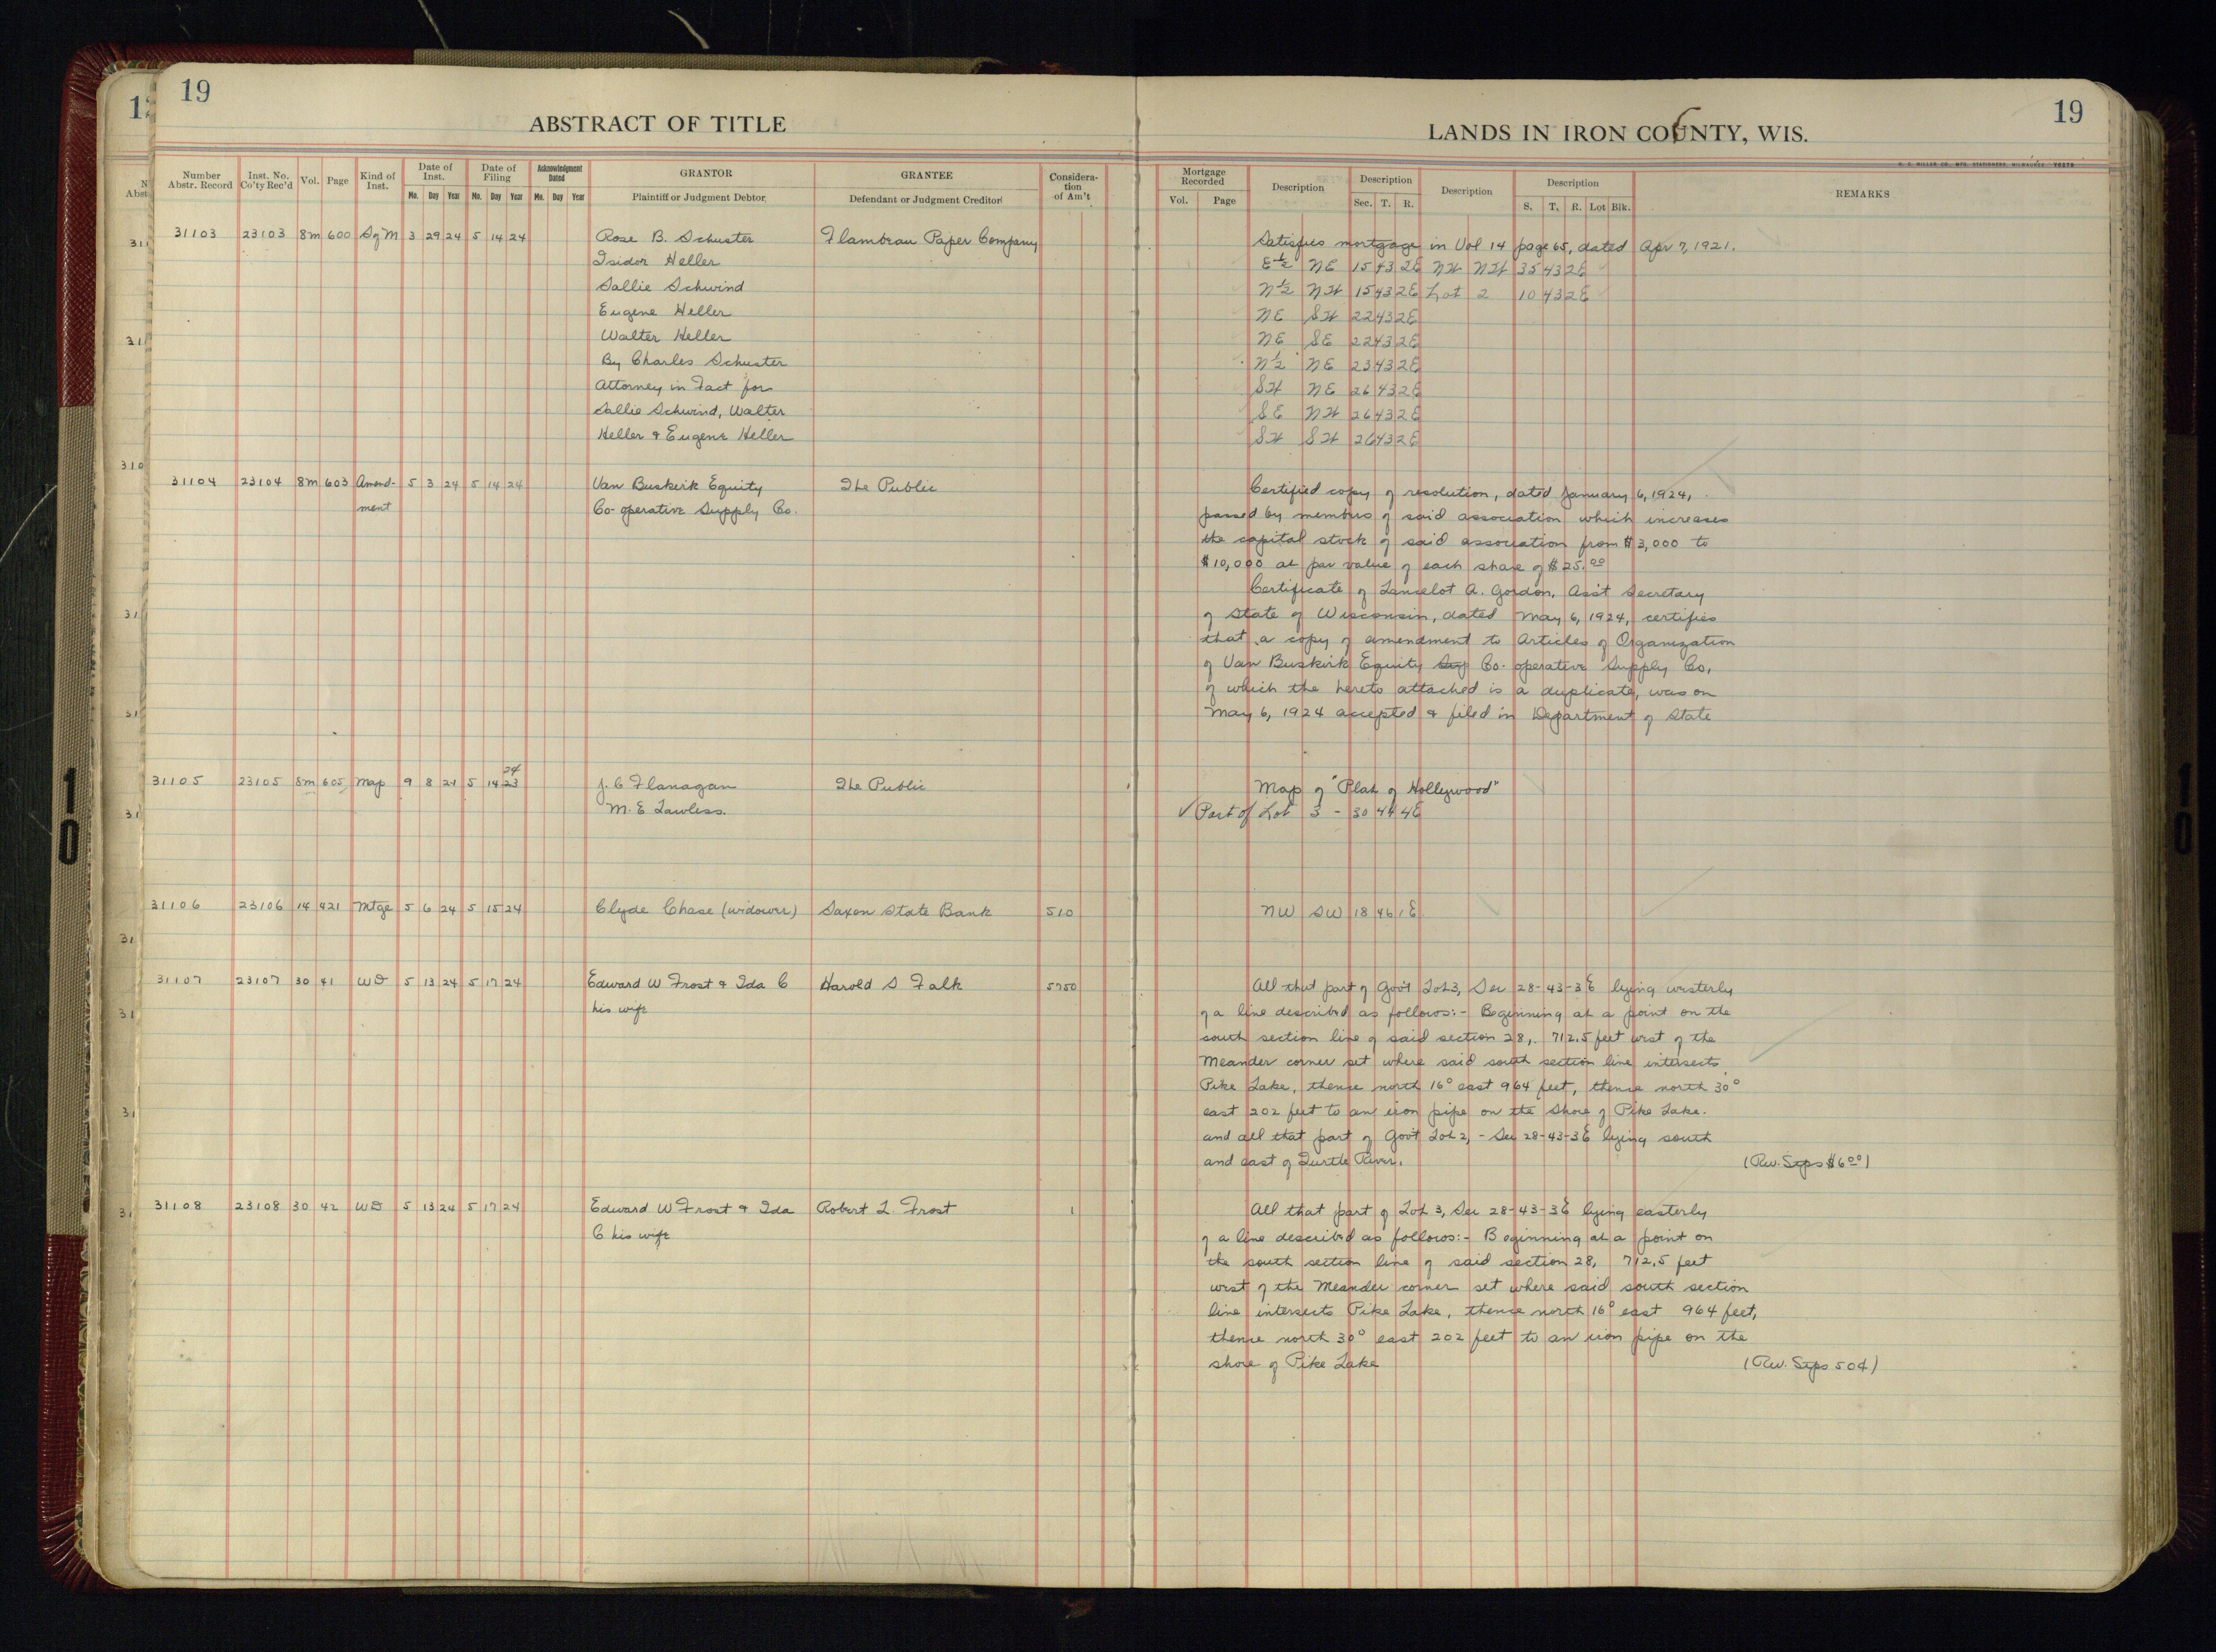 19
19
ABSTRACT OF TITLE
LANDS IN IRON COUNTY, WIS.
Number Abstr. Record
Inst. No. Co'ty Rec'd
Vol.
Page
Kind of Inst.
Date of Inst.
Mo. Day Year
Date of Filing
Mo. Day Year
Acknowledgment Dated
Mo. Day Year
GRANTOR
Plaintiff or Judgment Debtor
GRANTEE
Defendant or Judgment Creditor
Considera-
tion
of Am't
Mortgage Recorded
Vol. Page
Description
Description
Sec. T. R.
Description
Description
S. T. R. Lot Blk.
REMARKS
31103 23103 8m 600 Sg M 3 29 24 5 14 24 Rose B. Schuster Flambeau Paper Company Satisfies mortgage in Vol 14 page 65, dated Apr 7, 1921.
Isidor Heller E½ NE 15 43 2E NW NW 35 43 2E
Sallie Schwind N½ NW 15 43 2E Lot 2 10 43 2E
Eugene Heller NE SW 22 43 2E
Walter Heller NE SE 22 43 2E
By Charles Schuster N½ NE 23 43 2E
Attorney in Fact for SW NE 26 43 2E
Sallie Schwind, Walter SE NW 26 43 2E
Heller & Eugene Heller SW SW 26 43 2E
31104 23104 8m 603 Amend- 5 3 24 5 14 24 Van Buskirk Equity The Public Certified copy of resolution, dated January 6, 1924,
ment Co-operative Supply Co. passed by members of said association which increases
the capital stock of said association from $3,000 to
$10,000 at par value of each share of $25.00
Certificate of Lancelot A. Gordon, Ass't Secretary
of State of Wisconsin, dated May 6, 1924, certifies
that a copy of amendment to Articles of Organization
of Van Buskirk Equity Sup Co-operative Supply Co.
of which the hereto attached is a duplicate, was on
May 6, 1924 accepted & filed in Department of State
24
31105 23105 8m 605 Map 9 8 21 5 14 23 J. C Flanagan The Public Map of "Plat of Hollywood"
M. E Lawless. ✓ Part of Lot 3 - 30 44 4E
31106 23106 14 421 Mtge 5 6 24 5 15 24 Clyde Chase (widower) Saxon State Bank 510 NW SW 18 46 1E
31107 23107 30 41 WD 5 13 24 5 17 24 Edward W Frost & Ida C Harold S Falk 5750 All that part of Gov't Lot 3, Sec 28-43-3E lying westerly
his wife of a line described as follows:- Beginning at a point on the
south section line of said section 28, 712.5 feet west of the
Meander corner set where said south section line intersects
Pike Lake, thence north 16° east 964 feet, thence north 30°
east 202 feet to an iron pipe on the shore of Pike Lake.
and all that part of Gov't Lot 2, - Sec 28-43-3E lying south
and east of Turtle River. (Rev. Stps $6.00)
31108 23108 30 42 WD 5 13 24 5 17 24 Edward W Frost & Ida Robert L. Frost 1 All that part of Lot 3, Sec 28-43-3E lying easterly
C his wife of a line described as follows:- Beginning at a point on
the south section line of said section 28, 712.5 feet
west of the Meander corner set where said south section
line intersects Pike Lake, thence north 16° east 964 feet,
thence north 30° east 202 feet to an iron pipe on the
shore of Pike Lake (Rev. Stps 50¢)
10
10